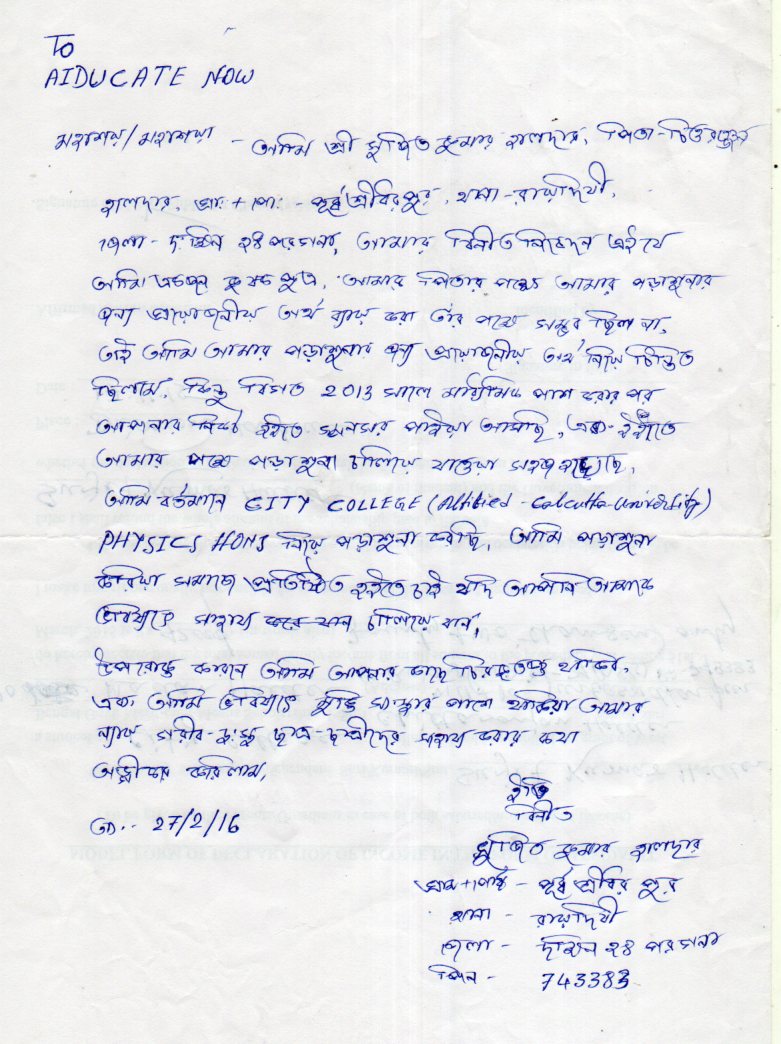 To
AIDUCATE NOW
মহাশয়/মহাশয়া - আমি শ্রী সুজিত কুমার হালদার, পিতা - চিত্তরঞ্জন
হালদার, গ্রাম + পো: - পূর্ব শ্রীধরপুর, থানা - রায়দিঘী,
জেলা - দঃক্ষিন ২৪ পরগনা, আমার বিনীত নিবেদন এই যে
আমি একজন কৃষক পুত্র, আমার পিতার পক্ষে আমার পড়াশুনার
জন্য প্রয়োজনীয় অর্থ ব্যায় করা তাঁর পক্ষে সম্ভব ছিল না,
তাই আমি আমার পড়াশুনার জন্য প্রয়োজনীয় অর্থ নিয়ে চিন্তিত
ছিলাম, কিন্তু বিগত 2013 সালে মাধ্যমিক পাশ করার পর
আপনার নিকট হইতে স্কলারসিপ পাইয়া আসছি, এবং ইহাতে
আমার পক্ষে পড়াশুনা চালিয়ে যাওয়া সহজ হয়েছে,
আমি বর্তমানে CITY COLLEGE (Affilied - Calcutta-University)
PHYSICS HONS নিয়ে পড়াশুনা করছি, আমি পড়াশুনা
করিয়া সমাজে প্রতিষ্ঠিত হইতে চাই যদি আপনি আমাকে
ভবিষ্যতে সাহায্য করে যান চালিয়ে যান,
উপরোক্ত কারনে আমি আপনার কাছে চিরকৃতজ্ঞ থাকিব,
এবং আমি ভবিষ্যতে মুক্তি সংস্থার পাশে থাকিয়া আমার
ন্যায় গরীব-দুঃস্থ ছাত্র-ছাত্রীদের সাহায্য করার কথা
অঙ্গীকার করিলাম,
তাং.- 27/2/16
ইতি
বিনীত
সুজিত কুমার হালদার
গ্রাম + পোষ্ট - পূর্ব শ্রীধর পুর
থানা - রায়দিঘী
জেলা - দক্ষিন ২৪ পরগনা
পিন - 743383